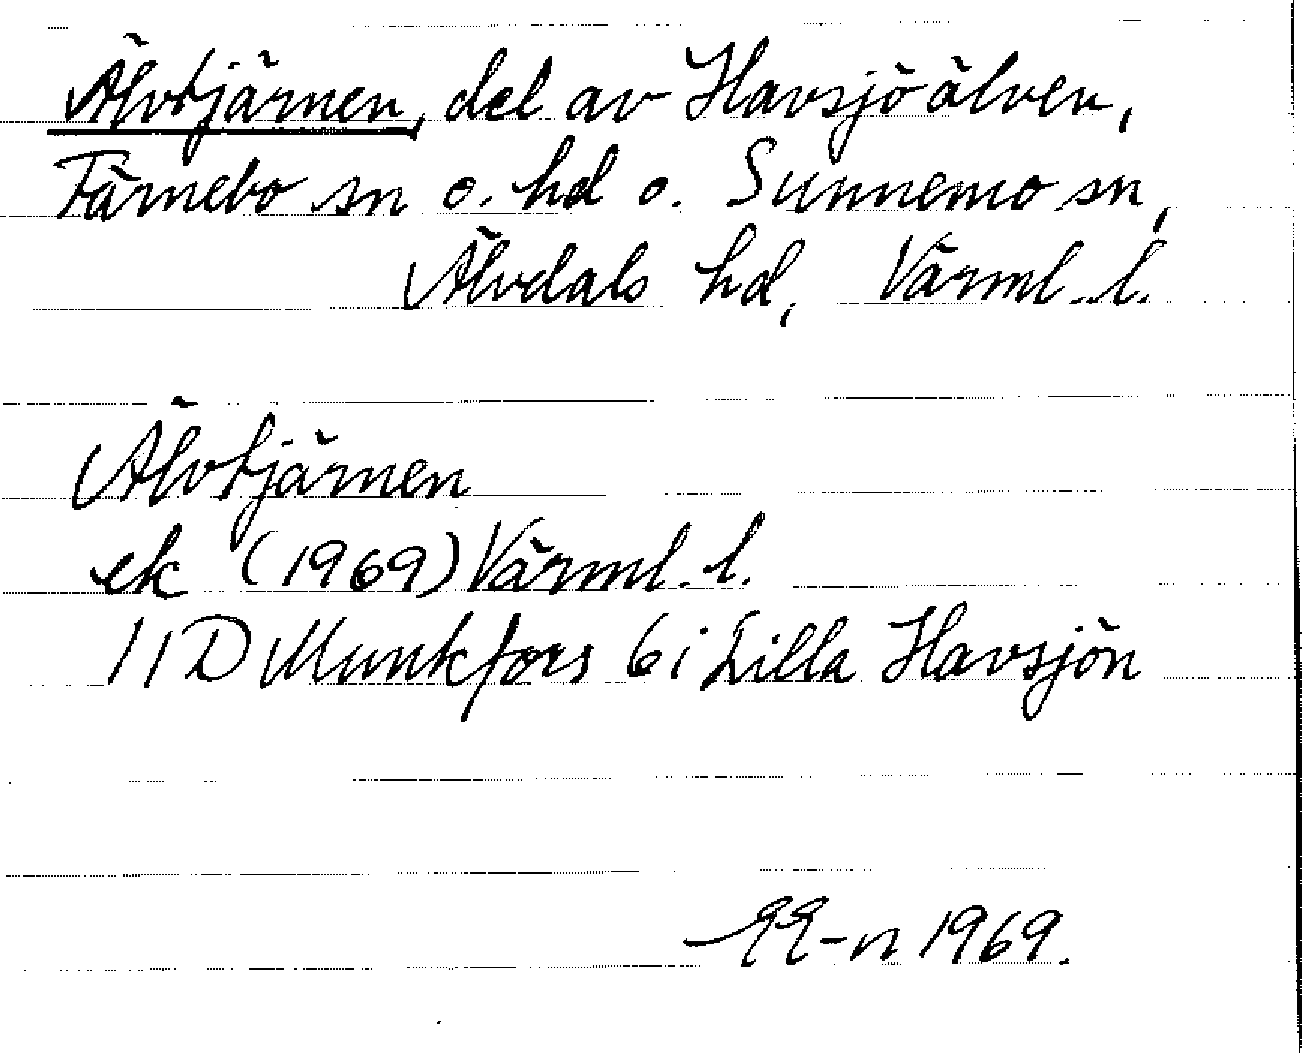 Älvtjärnen, del av Havsjöälven,
Färnebo sn o. hd o. Sunnemo sn,
Älvdals hd, Värml. l.
Älvtjärnen
ek (1969) Värml. l.
11D Munkfors 6i Lilla Havsjön
1969.